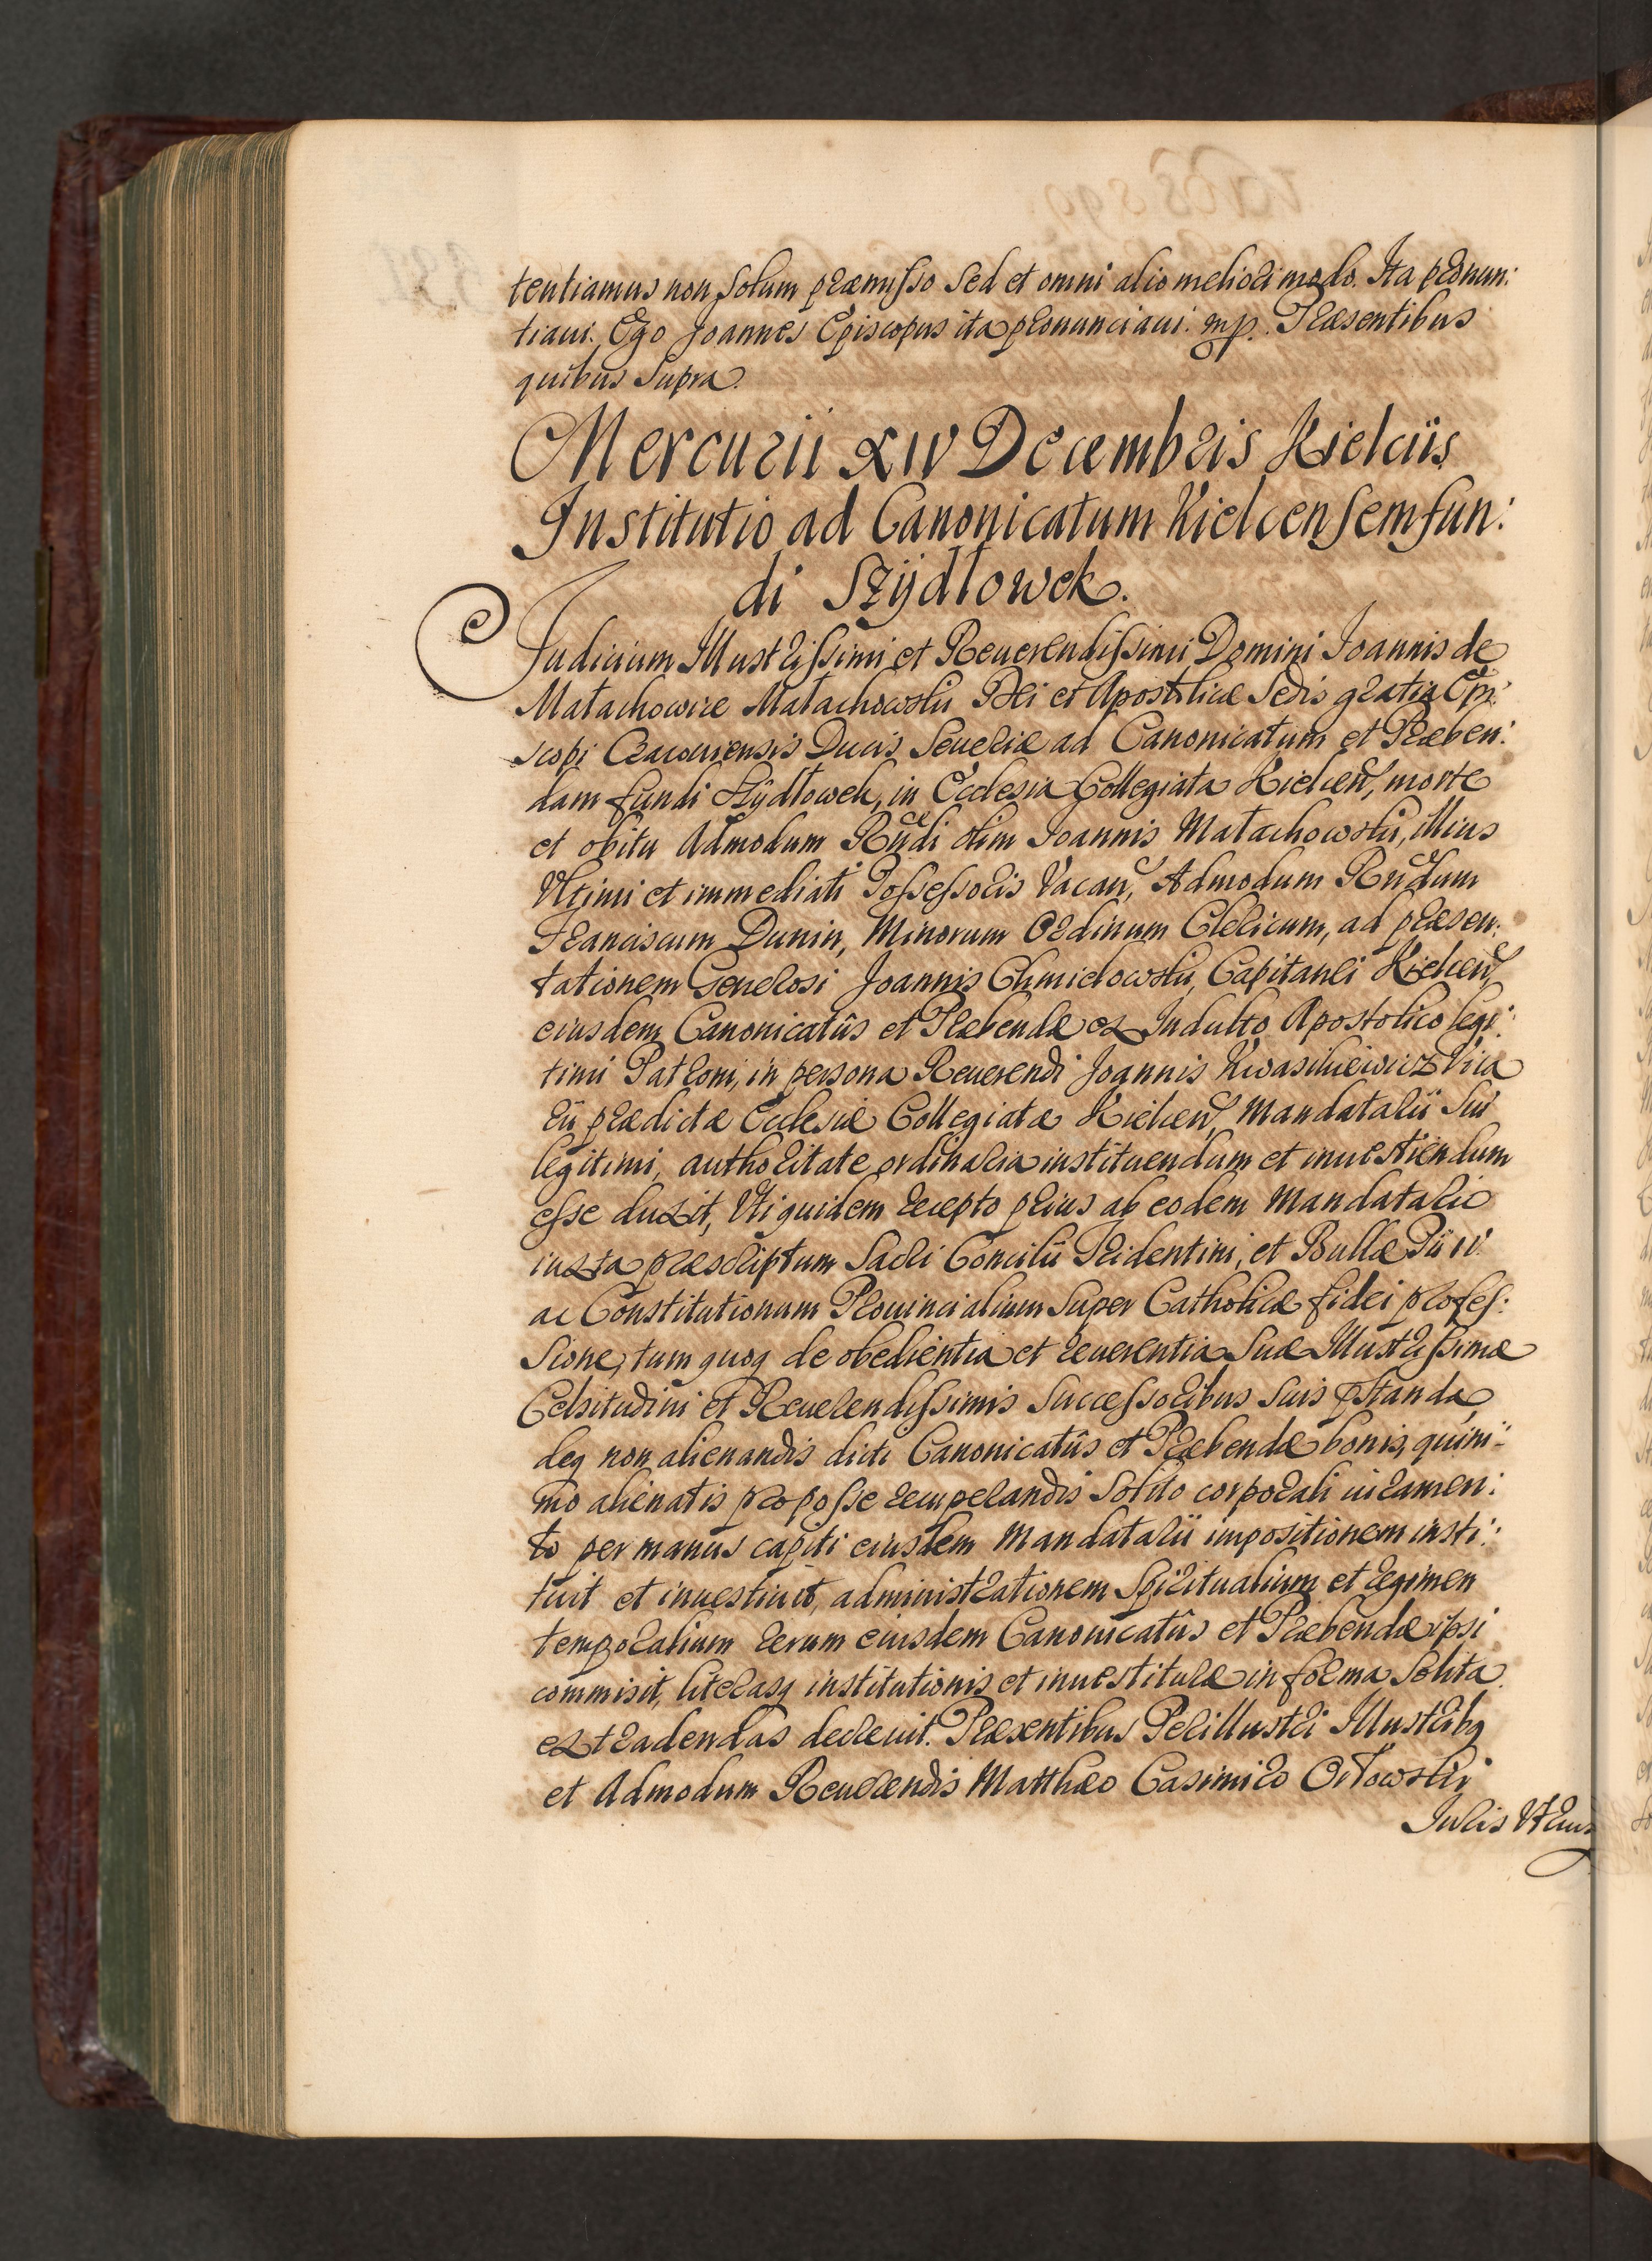 tentiamus non solum præmisso sed et omni alio meliori modo. Ita pronun:
tiaui. Ego Joannes Episcopus ita pronunciaui. mp. Præsentibus
quibus supra.
Mercurii XIV Decembris Kielciis
Institutio ad Canonicatum Kielcensem fun:
di Szÿdłowek.
Judicium Illustrissimi et Reuerendissimi Domini Joannis de
Małachowice Małachowski Dei et Apostolicæ Sedis gratia Epi:
scopi Cracouiensis Ducis Seueriæ ad Canonicatum et Præben:
dam fundi Szÿdłowek, in Ecclesia Collegiata Kielceñ, morte
et obitu Admodum Rñdi olim Joannis Małachowski, illius
Vltimi et immediati Possessoris Vacañ, Admodum Rñdum
Franciscum Dunin, Minorum Ordinum Clericum, ad præsen:
tationem Generosi Joannis Chmielowski, Capitanei Kielceñ,
eiusdem Canonicatûs et Præbendæ ex Indulto Apostolico legi:
timi Patroni, in persona Reuerendi Joannis Kwasniewicz Vica
rii prædictæ Ecclesiæ Collegiatæ Kielceñ, Mandatarii sui
legitimi, authoritate ordinaria instituendum et inuestiendum
esse duxit, Vti quidem recepto prius ab eodem Mandatario
iuxta præscriptum Sacri Concilii Tridentini, et Bullæ Pii IV.
ac Constitutionum Prouincialium super Catholicæ fidei profes:
sione, tum quoq de obedientia et reuerentia suæ Illustrissimæ
Celsitudini et Reuerendissimis Successoribus suis pstanda,
deq non alienandis dicti Canonicatûs et Præbendæ bonis, quini:
mo alienatis pro posse recuperandis solito corporali iuramen:
to per manus capiti eiusdem Mandatarii impositionem insti:
tuit et inuestiuit, administrationem Spiritualium et regimen
temporalium rerum eiusdem Canonicatûs et Præbendæ ipsi
commisit, literasq institutionis et inuestituræ in forma solita
extradendas decreuit. Præsentibus Perillustri Illustribq
et Admodum Reuerendis Matthæo Casimiro Orłowski
Juris